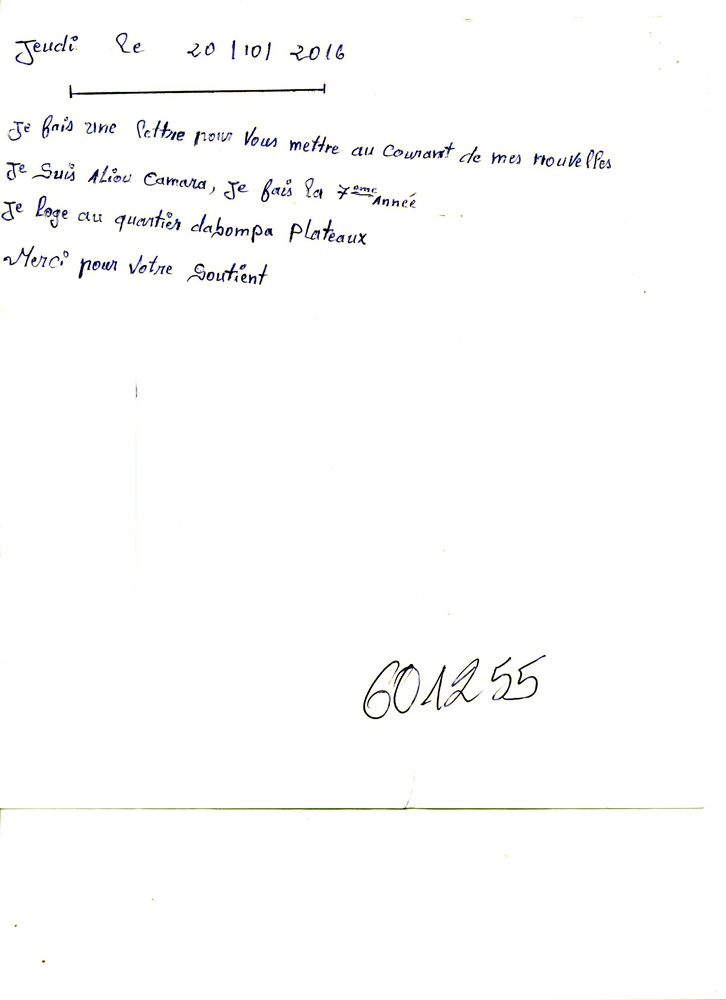 Jeudi le 20/10/2016
Je fais une lettre pour vous mettre au courant de mes nouvelles
Je Suis Aliou Camara, Je fais la 7eme Année
Je loge au quartier dabompa Plateaux
Merci pour votre Soutient
601255